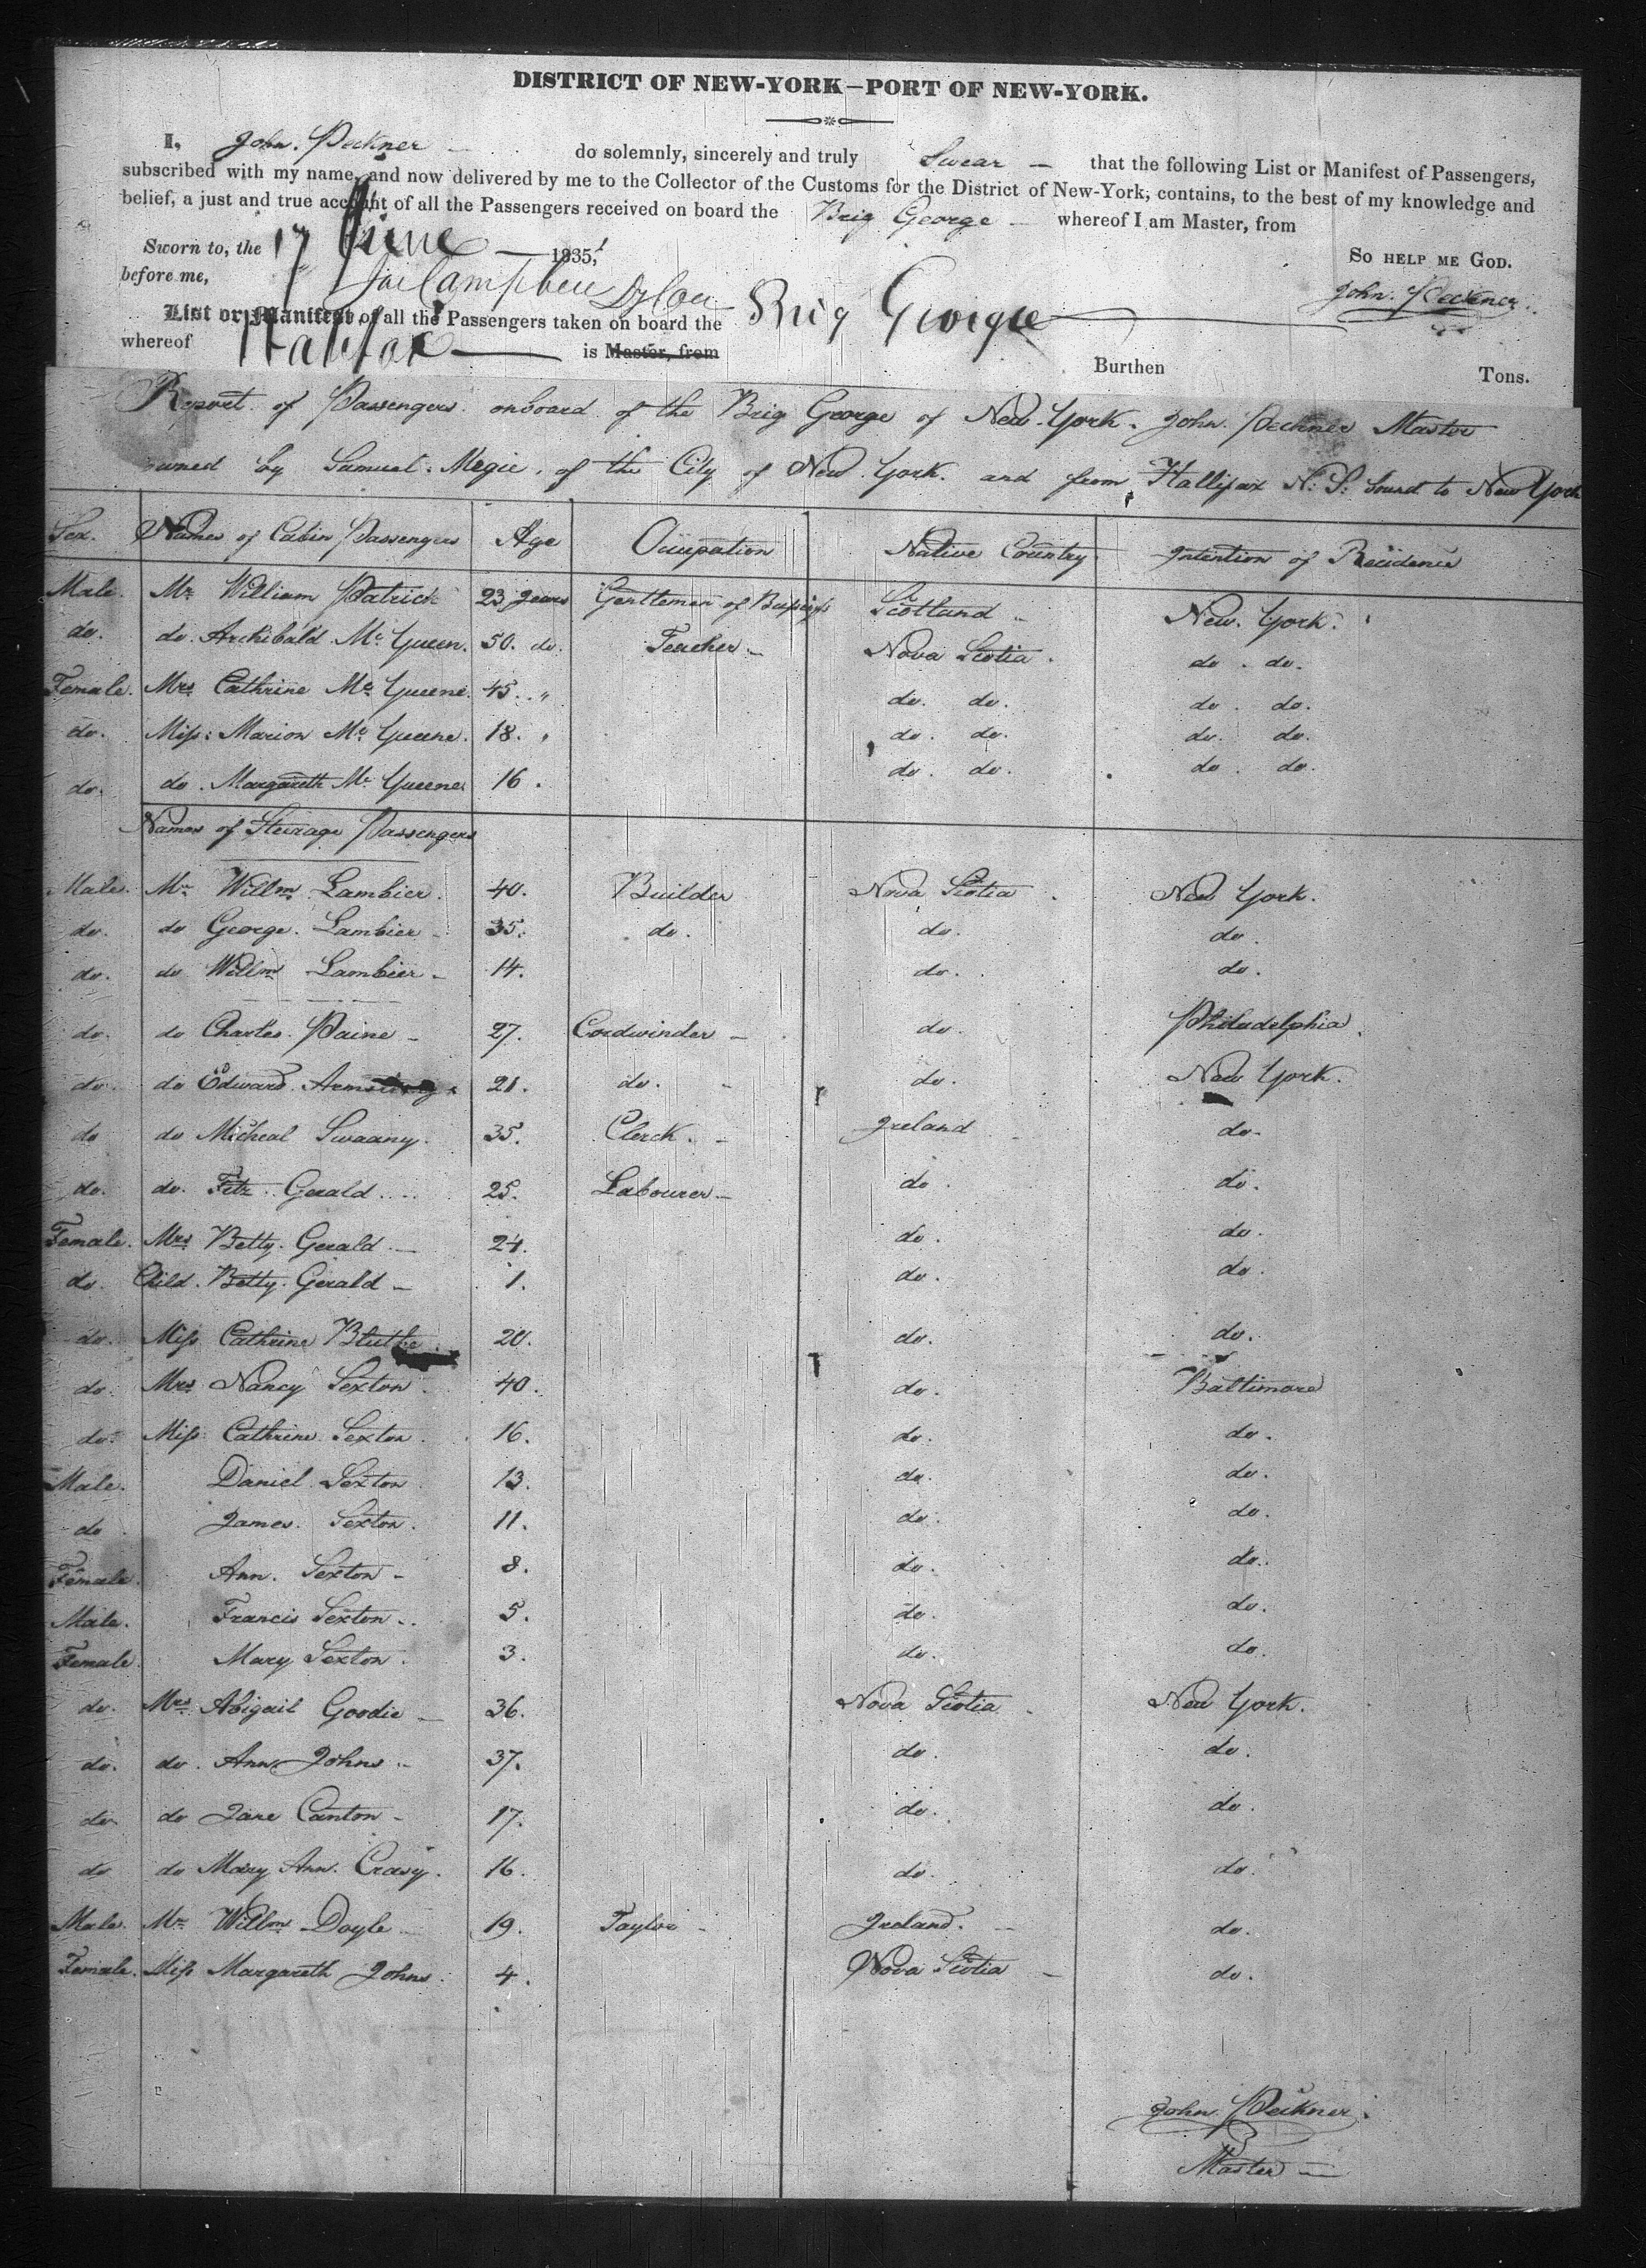 DISTRICT OF NEW-YORK—PORT OF NEW-YORK.
I, John. Peckner — do solemnly, sincerely and truly Swear — that the following List or Manifest of Passengers,
subscribed with my name, and now delivered by me to the Collector of the Customs for the District of New-York, contains, to the best of my knowledge and
belief, a just and true account of all the Passengers received on board the Brig George — whereof I am Master, from
Sworn to, the 17 June — 1835, SO HELP ME GOD.
before me, Campbell John. Peckner.
List or Manifest of all the Passengers taken on board the Brig George
whereof Halifax — is Master, from Burthen Tons.
Report of Passengers onboard of the Brig George of New-York. John. Peckner Master
owned by Samuel. Megie. of the City of New York. and from Hallifax N: S: bound to New York
Sex. Names of Cabin Passengers Age Occupation Native Country Intention of Residence
Male. Mr William Patrick 23 years Gentlemen of Scotland New. York.
do. do. Archibald Mc Queen. 50. do. Teacher — Nova Scotia. do. do.
Female. Mrs Cathrine Mc Queene. 45. " do. do. do. do.
do. Miss: Marion Mc Queene. 18. " do. do. do. do.
do. do. Margareth Mc Queene 16. do. do. do. do.
Names of Steerage Passengers
Male. Mr Willm Lambier. 40. Builder Nova Scotia New York.
do. do George. Lambier — 35. do. do. do.
do. do Willm Lambier — 14. do. do.
do. do Charles. Paine — 27. Cordwinder — do. Philadelphia.
do. do Edward. Armstrong. 21. do. do. New York.
do do Micheal Swaany. 35. Clerck. — Ireland do.
do. do. Fitz. Gerald... 25. Labourer — do. do.
Female. Mrs Betty. Gerald. — 24. do. do.
do Child. Betty. Gerald — 1. do. do.
do. Miss Cathrine 20. do. do.
do. Mrs Nancy Sexton. 40. do. Baltimore
do. Miss Cathrine. Sexton. 16. do. do.
Male. Daniel. Sexton 13. do. do.
do James. Sexton. 11. do. do.
Female. Ann. Sexton — 8. do. do.
Male. Francis Sexton.. 5. do. do.
Female. Mary Sexton. 3. do. do.
do. Mrs Abigail Goodie — 36. Nova Scotia New York.
do. do. Ann. Johns — 37. do. do.
do do Jane Canton — 17. do. do.
do do Mary Ann. 16. do. do.
Male. Mr Willm Doyle 19. Taylor — Ireland. — do.
Female. Miss Margareth Johns. 4. Nova Scotia — do.
John. Peckner.
Master —